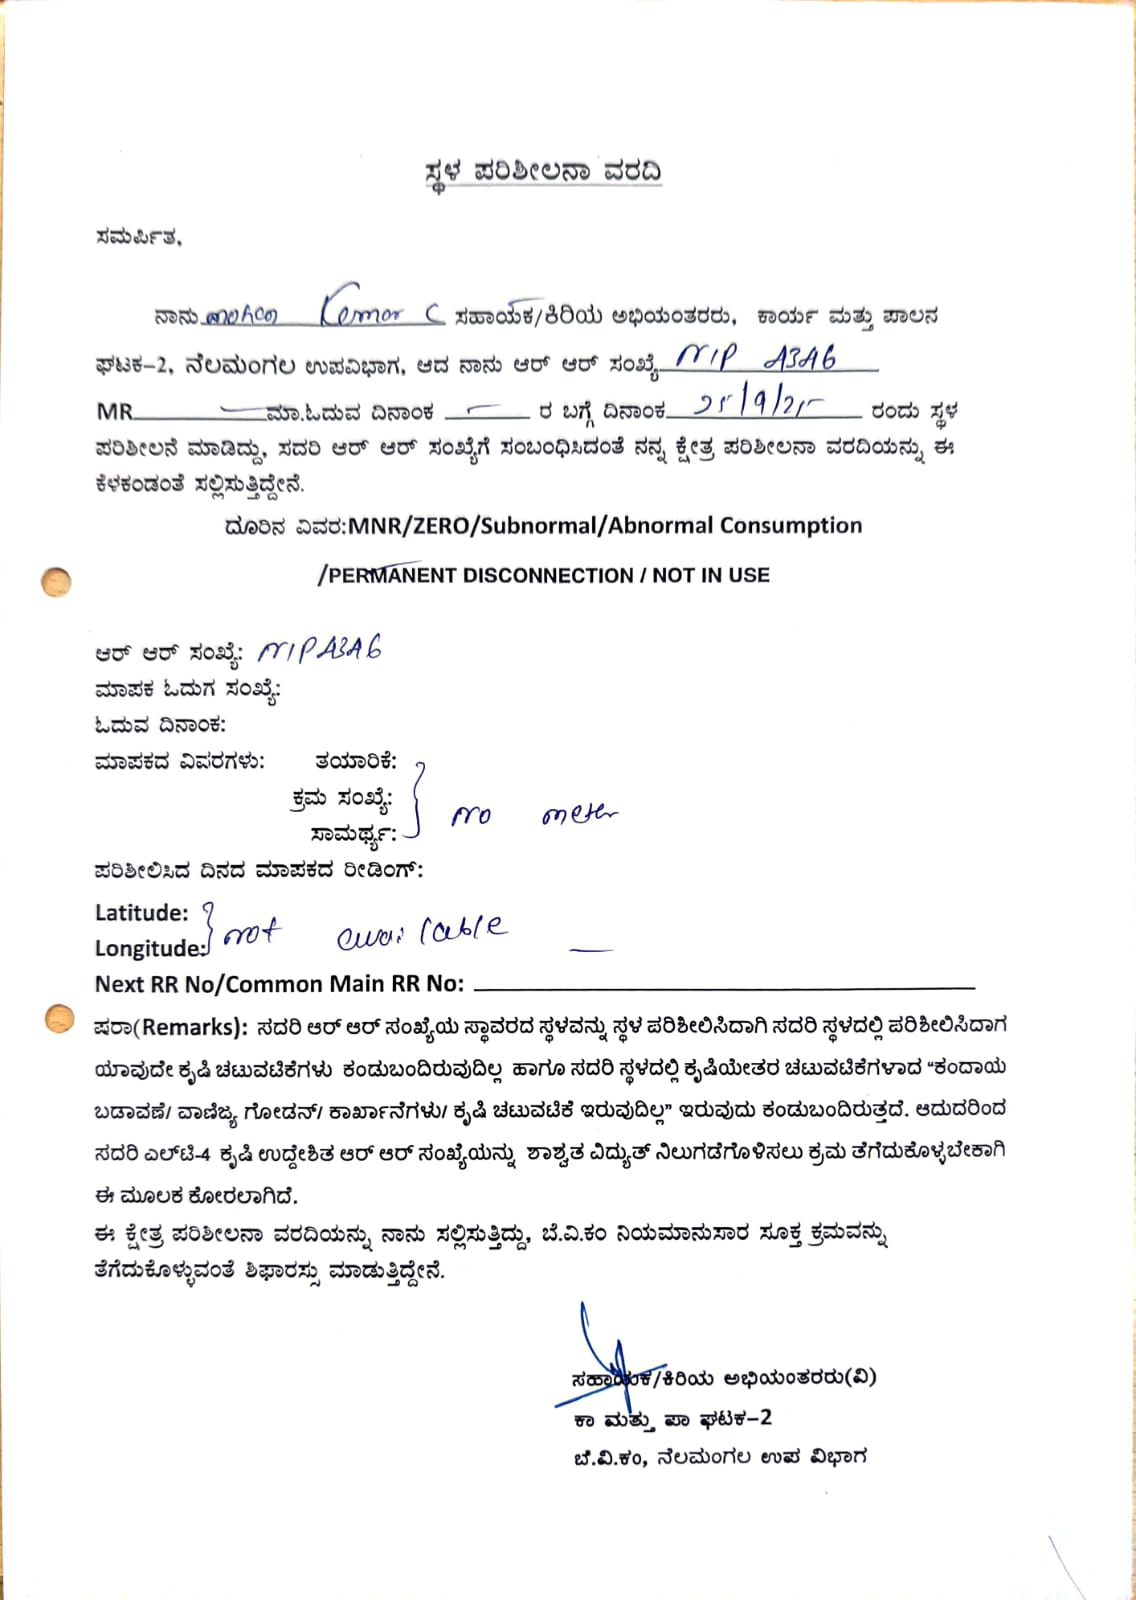 ಸ್ಥಳ ಪರಿಶೀಲನಾ ವರದಿ
ಸಮರ್ಪಿತ,
ನಾನು Kumar C ಸಹಾಯಕ/ಕಿರಿಯ ಅಭಿಯಂತರರು, ಕಾರ್ಯ ಮತ್ತು ಪಾಲನ
ಘಟಕ-2, ನೆಲಮಂಗಲ ಉಪವಿಭಾಗ, ಆದ ನಾನು ಆರ್ ಆರ್ ಸಂಖ್ಯೆ NIP A3A6
MR ಮಾ.ಓದುವ ದಿನಾಂಕ ರ ಬಗ್ಗೆ ದಿನಾಂಕ 25/9/25 ರಂದು ಸ್ಥಳ
ಪರಿಶೀಲನೆ ಮಾಡಿದ್ದು, ಸದರಿ ಆರ್ ಆರ್ ಸಂಖ್ಯೆಗೆ ಸಂಬಂಧಿಸಿದಂತೆ ನನ್ನ ಕ್ಷೇತ್ರ ಪರಿಶೀಲನಾ ವರದಿಯನ್ನು ಈ
ಕೆಳಕಂಡಂತೆ ಸಲ್ಲಿಸುತ್ತಿದ್ದೇನೆ.
ದೂರಿನ ವಿವರ:MNR/ZERO/Subnormal/Abnormal Consumption
/PERMANENT DISCONNECTION / NOT IN USE
ಆರ್ ಆರ್ ಸಂಖ್ಯೆ: NIPA3A6
ಮಾಪಕ ಓದುಗ ಸಂಖ್ಯೆ:
ಓದುವ ದಿನಾಂಕ:
ಮಾಪಕದ ವಿವರಗಳು: ತಯಾರಿಕೆ:
ಕ್ರಮ ಸಂಖ್ಯೆ: no meter
ಸಾಮರ್ಥ್ಯ:
ಪರಿಶೀಲಿಸಿದ ದಿನದ ಮಾಪಕದ ರೀಡಿಂಗ್:
Latitude:
Longitude: not available
Next RR No/Common Main RR No:
ಷರಾ(Remarks): ಸದರಿ ಆರ್ ಆರ್ ಸಂಖ್ಯೆಯ ಸ್ಥಾವರದ ಸ್ಥಳವನ್ನು ಸ್ಥಳ ಪರಿಶೀಲಿಸಿದಾಗಿ ಸದರಿ ಸ್ಥಳದಲ್ಲಿ ಪರಿಶೀಲಿಸಿದಾಗ
ಯಾವುದೇ ಕೃಷಿ ಚಟುವಟಿಕೆಗಳು ಕಂಡುಬಂದಿರುವುದಿಲ್ಲ ಹಾಗೂ ಸದರಿ ಸ್ಥಳದಲ್ಲಿ ಕೃಷಿಯೇತರ ಚಟುವಟಿಕೆಗಳಾದ “ಕಂದಾಯ
ಬಡಾವಣೆ/ ವಾಣಿಜ್ಯ ಗೋಡನ್/ ಕಾರ್ಖಾನೆಗಳು/ ಕೃಷಿ ಚಟುವಟಿಕೆ ಇರುವುದಿಲ್ಲ” ಇರುವುದು ಕಂಡುಬಂದಿರುತ್ತದೆ. ಆದುದರಿಂದ
ಸದರಿ ಎಲ್‌ಟಿ-4 ಕೃಷಿ ಉದ್ದೇಶಿತ ಆರ್ ಆರ್ ಸಂಖ್ಯೆಯನ್ನು ಶಾಶ್ವತ ವಿದ್ಯುತ್ ನಿಲುಗಡೆಗೊಳಿಸಲು ಕ್ರಮ ತೆಗೆದುಕೊಳ್ಳಬೇಕಾಗಿ
ಈ ಮೂಲಕ ಕೋರಲಾಗಿದೆ.
ಈ ಕ್ಷೇತ್ರ ಪರಿಶೀಲನಾ ವರದಿಯನ್ನು ನಾನು ಸಲ್ಲಿಸುತ್ತಿದ್ದು, ಬೆ.ವಿ.ಕಂ ನಿಯಮಾನುಸಾರ ಸೂಕ್ತ ಕ್ರಮವನ್ನು
ತೆಗೆದುಕೊಳ್ಳುವಂತೆ ಶಿಫಾರಸ್ಸು ಮಾಡುತ್ತಿದ್ದೇನೆ.
ಸಹಾಯಕ/ಕಿರಿಯ ಅಭಿಯಂತರರು(ವಿ)
ಕಾ ಮತ್ತು ಪಾ ಘಟಕ-2
ಬೆ.ವಿ.ಕಂ, ನೆಲಮಂಗಲ ಉಪ ವಿಭಾಗ